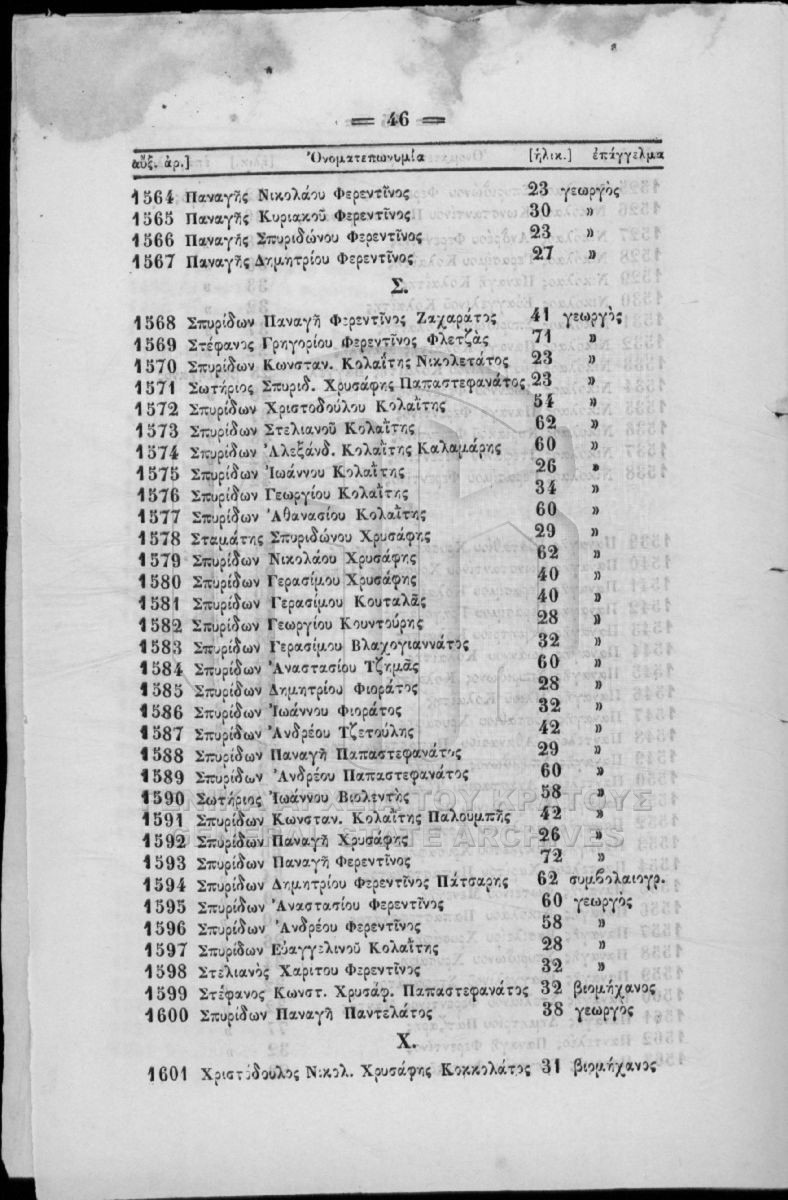 = 46 =
αὔξ. ἀρ.] Ὀνοματεπωνυμία [ἡλικ.] ἐπάγγελμα
1564 Παναγῆς Νικολάου Φερεντῖνος 23 γεωργὸς
1565 Παναγῆς Κυριακοῦ Φερεντῖνος 30 »
1566 Παναγῆς Σπυριδώνου Φερεντῖνος 23 »
1567 Παναγῆς Δημητρίου Φερεντῖνος 27 »
Σ.
1568 Σπυρίδων Παναγῆ Φερεντῖνος Ζαχαράτος 41 γεωργὸς
1569 Στέφανος Γρηγορίου Φερεντῖνος Φλετζὰς 71 »
1570 Σπυρίδων Κωνσταν. Κολαΐτης Νικολετάτος 23 »
1571 Σωτήριος Σπυριδ. Χρυσάφης Παπαστεφανάτος 23 »
1572 Σπυρίδων Χριστοδούλου Κολαΐτης 54 »
1573 Σπυρίδων Στελιανοῦ Κολαΐτης 62 »
1574 Σπυρίδων Ἀλεξάνδ. Κολαΐτης Καλαμάρης 60 »
1575 Σπυρίδων Ἰωάννου Κολαΐτης 26 »
1576 Σπυρίδων Γεωργίου Κολαΐτης 34 »
1577 Σπυρίδων Ἀθανασίου Κολαΐτης 60 »
1578 Σταμάτης Σπυριδώνου Χρυσάφης 29 »
1579 Σπυρίδων Νικολάου Χρυσάφης 62 »
1580 Σπυρίδων Γερασίμου Χρυσάφης 40 »
1581 Σπυρίδων Γερασίμου Κουταλᾶς 40 »
1582 Σπυρίδων Γεωργίου Κουντούρης 28 »
1583 Σπυρίδων Γερασίμου Βλαχογιαννάτος 32 »
1584 Σπυρίδων Ἀναστασίου Τζημᾶς 60 »
1585 Σπυρίδων Δημητρίου Φιοράτος 28 »
1586 Σπυρίδων Ἰωάννου Φιοράτος 32 »
1587 Σπυρίδων Ἀνδρέου Τζετούλης 42 »
1588 Σπυρίδων Παναγῆ Παπαστεφανάτος 29 »
1589 Σπυρίδων Ἀνδρέου Παπαστεφανάτος 60 »
1590 Σωτήριος Ἰωάννου Βιολεντὴς 58 »
1591 Σπυρίδων Κωνσταν. Κολαΐτης Παλουμπῆς 42 »
1592 Σπυρίδων Παναγῆ Χρυσάφης 26 »
1593 Σπυρίδων Παναγῆ Φερεντῖνος 72 »
1594 Σπυρίδων Δημητρίου Φερεντῖνος Πάτσαρης 62 συμβολαιογρ.
1595 Σπυρίδων Ἀναστασίου Φερεντῖνος 60 γεωργὸς
1596 Σπυρίδων Ἀνδρέου Φερεντῖνος 58 »
1597 Σπυρίδων Εὐαγγελινοῦ Κολαΐτης 28 »
1598 Στελιανὸς Χαριτου Φερεντῖνος 32 »
1599 Στέφανος Κωνστ. Χρυσάφ. Παπαστεφανάτος 32 βιομήχανος
1600 Σπυρίδων Παναγῆ Παντελάτος 38 γεωργὸς
Χ.
1601 Χριστόδουλος Νικολ. Χρυσάφης Κοκκολάτος 31 βιομήχανος